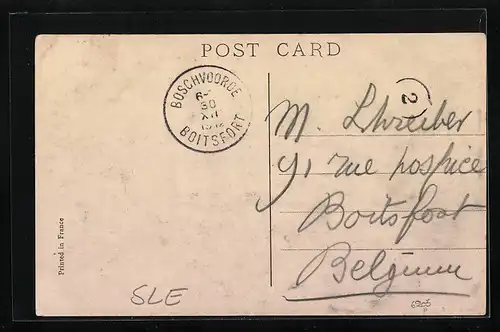 POST CARD
BOSCHVOORDE
6-
30
XII
BOITSFORT
2
M. Schreiber
91 rue hospice
Boitsfort
Belgium
Printed in France
SLE
6205